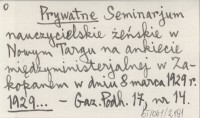 Prywatne Seminarjum
nauczycielskie żeńskie w
Nowym Targu na ankiecie
międzyministerjalnej w Za-
kopanem w dniu 8 marca 1929 r.
1929... – Gaz. Podh. 17, nr 14.